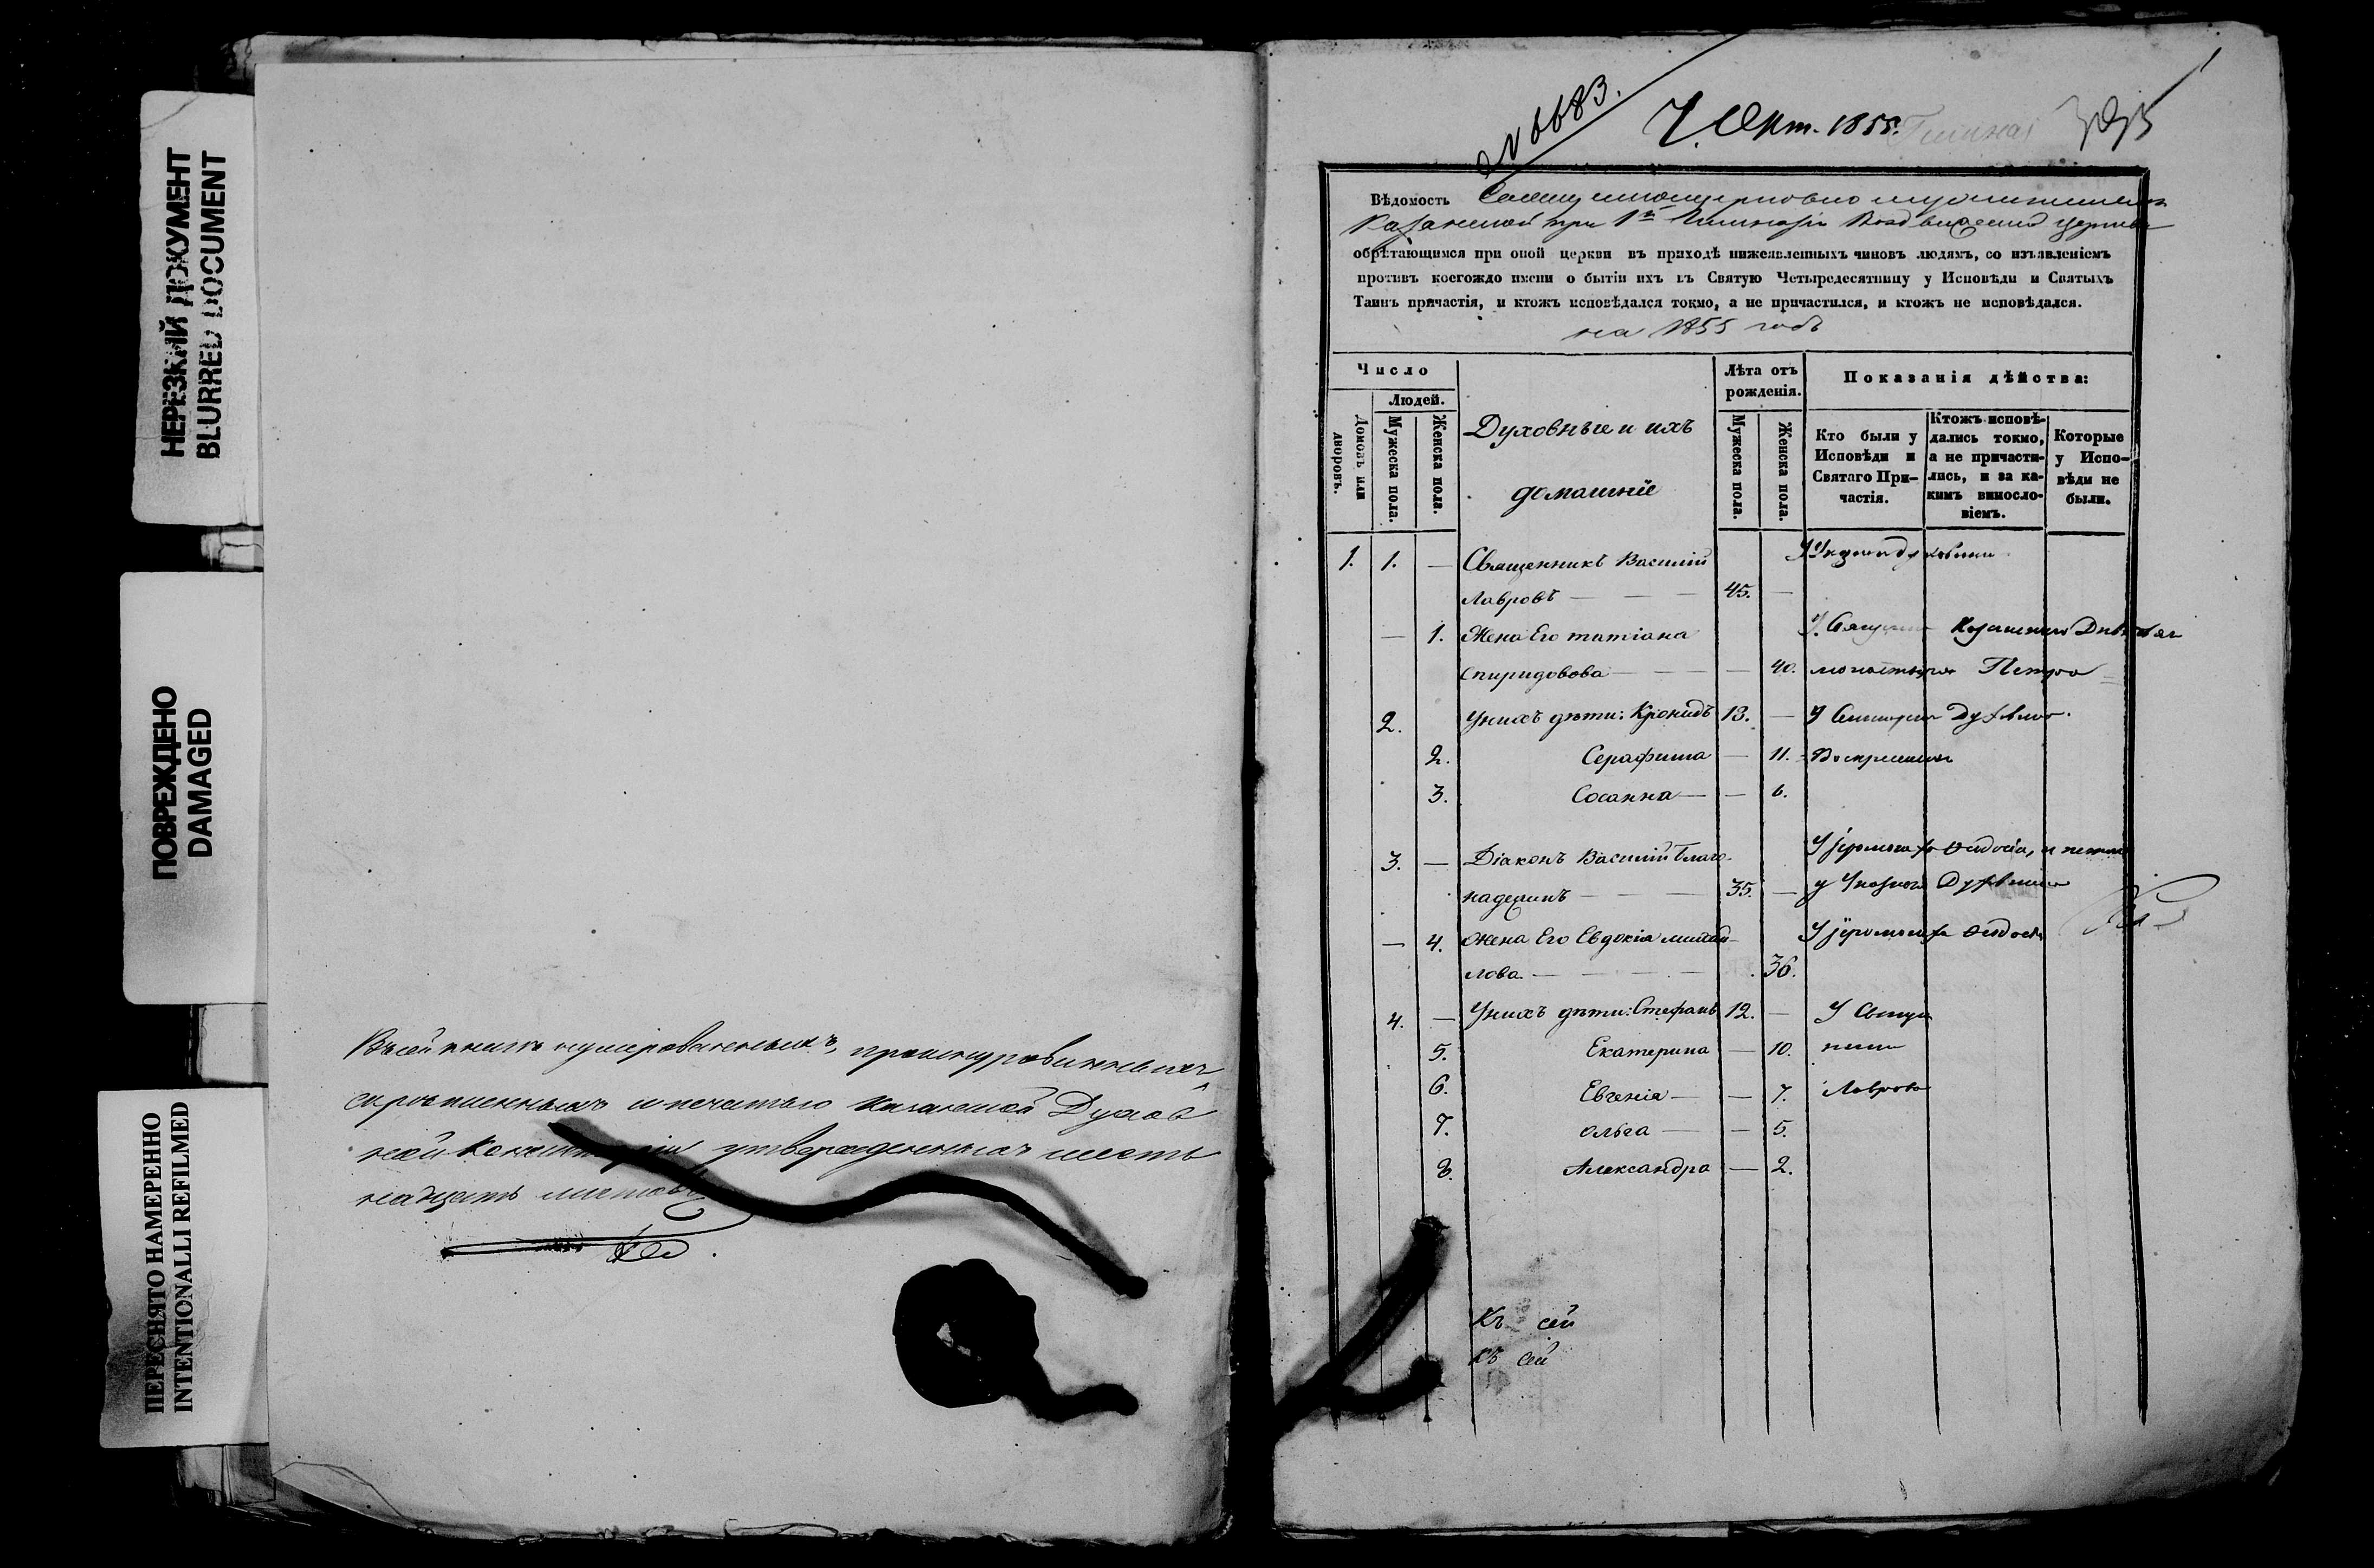 НЕРЕЗКИЙ ДОКУМЕНТ
BLURRED DOCUMENT
ПОВРЕЖДЕНО
DAMAGED
ПЕРЕСНЯТО НАМЕРЕННО
INTENTIONALLI REFILMED
Въ сей книгѣ нумерованныхъ, прошнурованныхъ
скрѣпленныхъ и печатью Казанской Духов
ной Консисторіи утвержденныхъ шесть
надцать листовъ
№ 6683.
7. Окт. 1855.
Вѣдомость
Казанской при 1й Гимназіи Воздвиженской церкви
обрѣтающимся при оной церкви въ приходѣ нижеявленныхъ чиновъ людямъ, со изъявленіемъ
противъ коегождо имени о бытіи ихъ въ Святую Четыредесятницу у Исповѣди и Святыхъ
Таинъ причастія, и ктожъ исповѣдался токмо, а не причастился, и ктожъ не исповѣдался.
на 1855 годъ
Число
Людей.
Домовъ или дворовъ.
Мужеска пола.
Женска пола.
Духовные и ихъ
домашніе
Лѣта отъ рожденія.
Мужеска пола.
Женска пола.
Показанія дѣйства:
Кто были у Исповѣди и Святаго При-частія.
Ктожъ исповѣ-дались токмо, а не причасти-лись, и за ка-кимъ винословіемъ.
Которые у Испо-вѣди не были.
1. 1. — Священникъ Василій
Лавровъ — — — 45. —
— 1. Жена Его татіана
Спиридовова — — — 40. монастыря Петра
2. У нихъ дѣти: Кронидъ 13. — У
2. Серафима — 11. Воскресенск
3. Сосанна — — 6.
3. — Діаконъ Василій Благо-
надеждинъ — — 35. — у Указнаго Духовника
— 4. Жена Его Евдокія михай-
лова — — — 36.
4. — У нихъ дѣти: Стефанъ 12. — У Священ
5. Екатерина — 10. ника
6. Евгенія — — 7. Лаврова
7. Ольга — — 5.
8. Александра — 2.
Къ сей
Къ сей